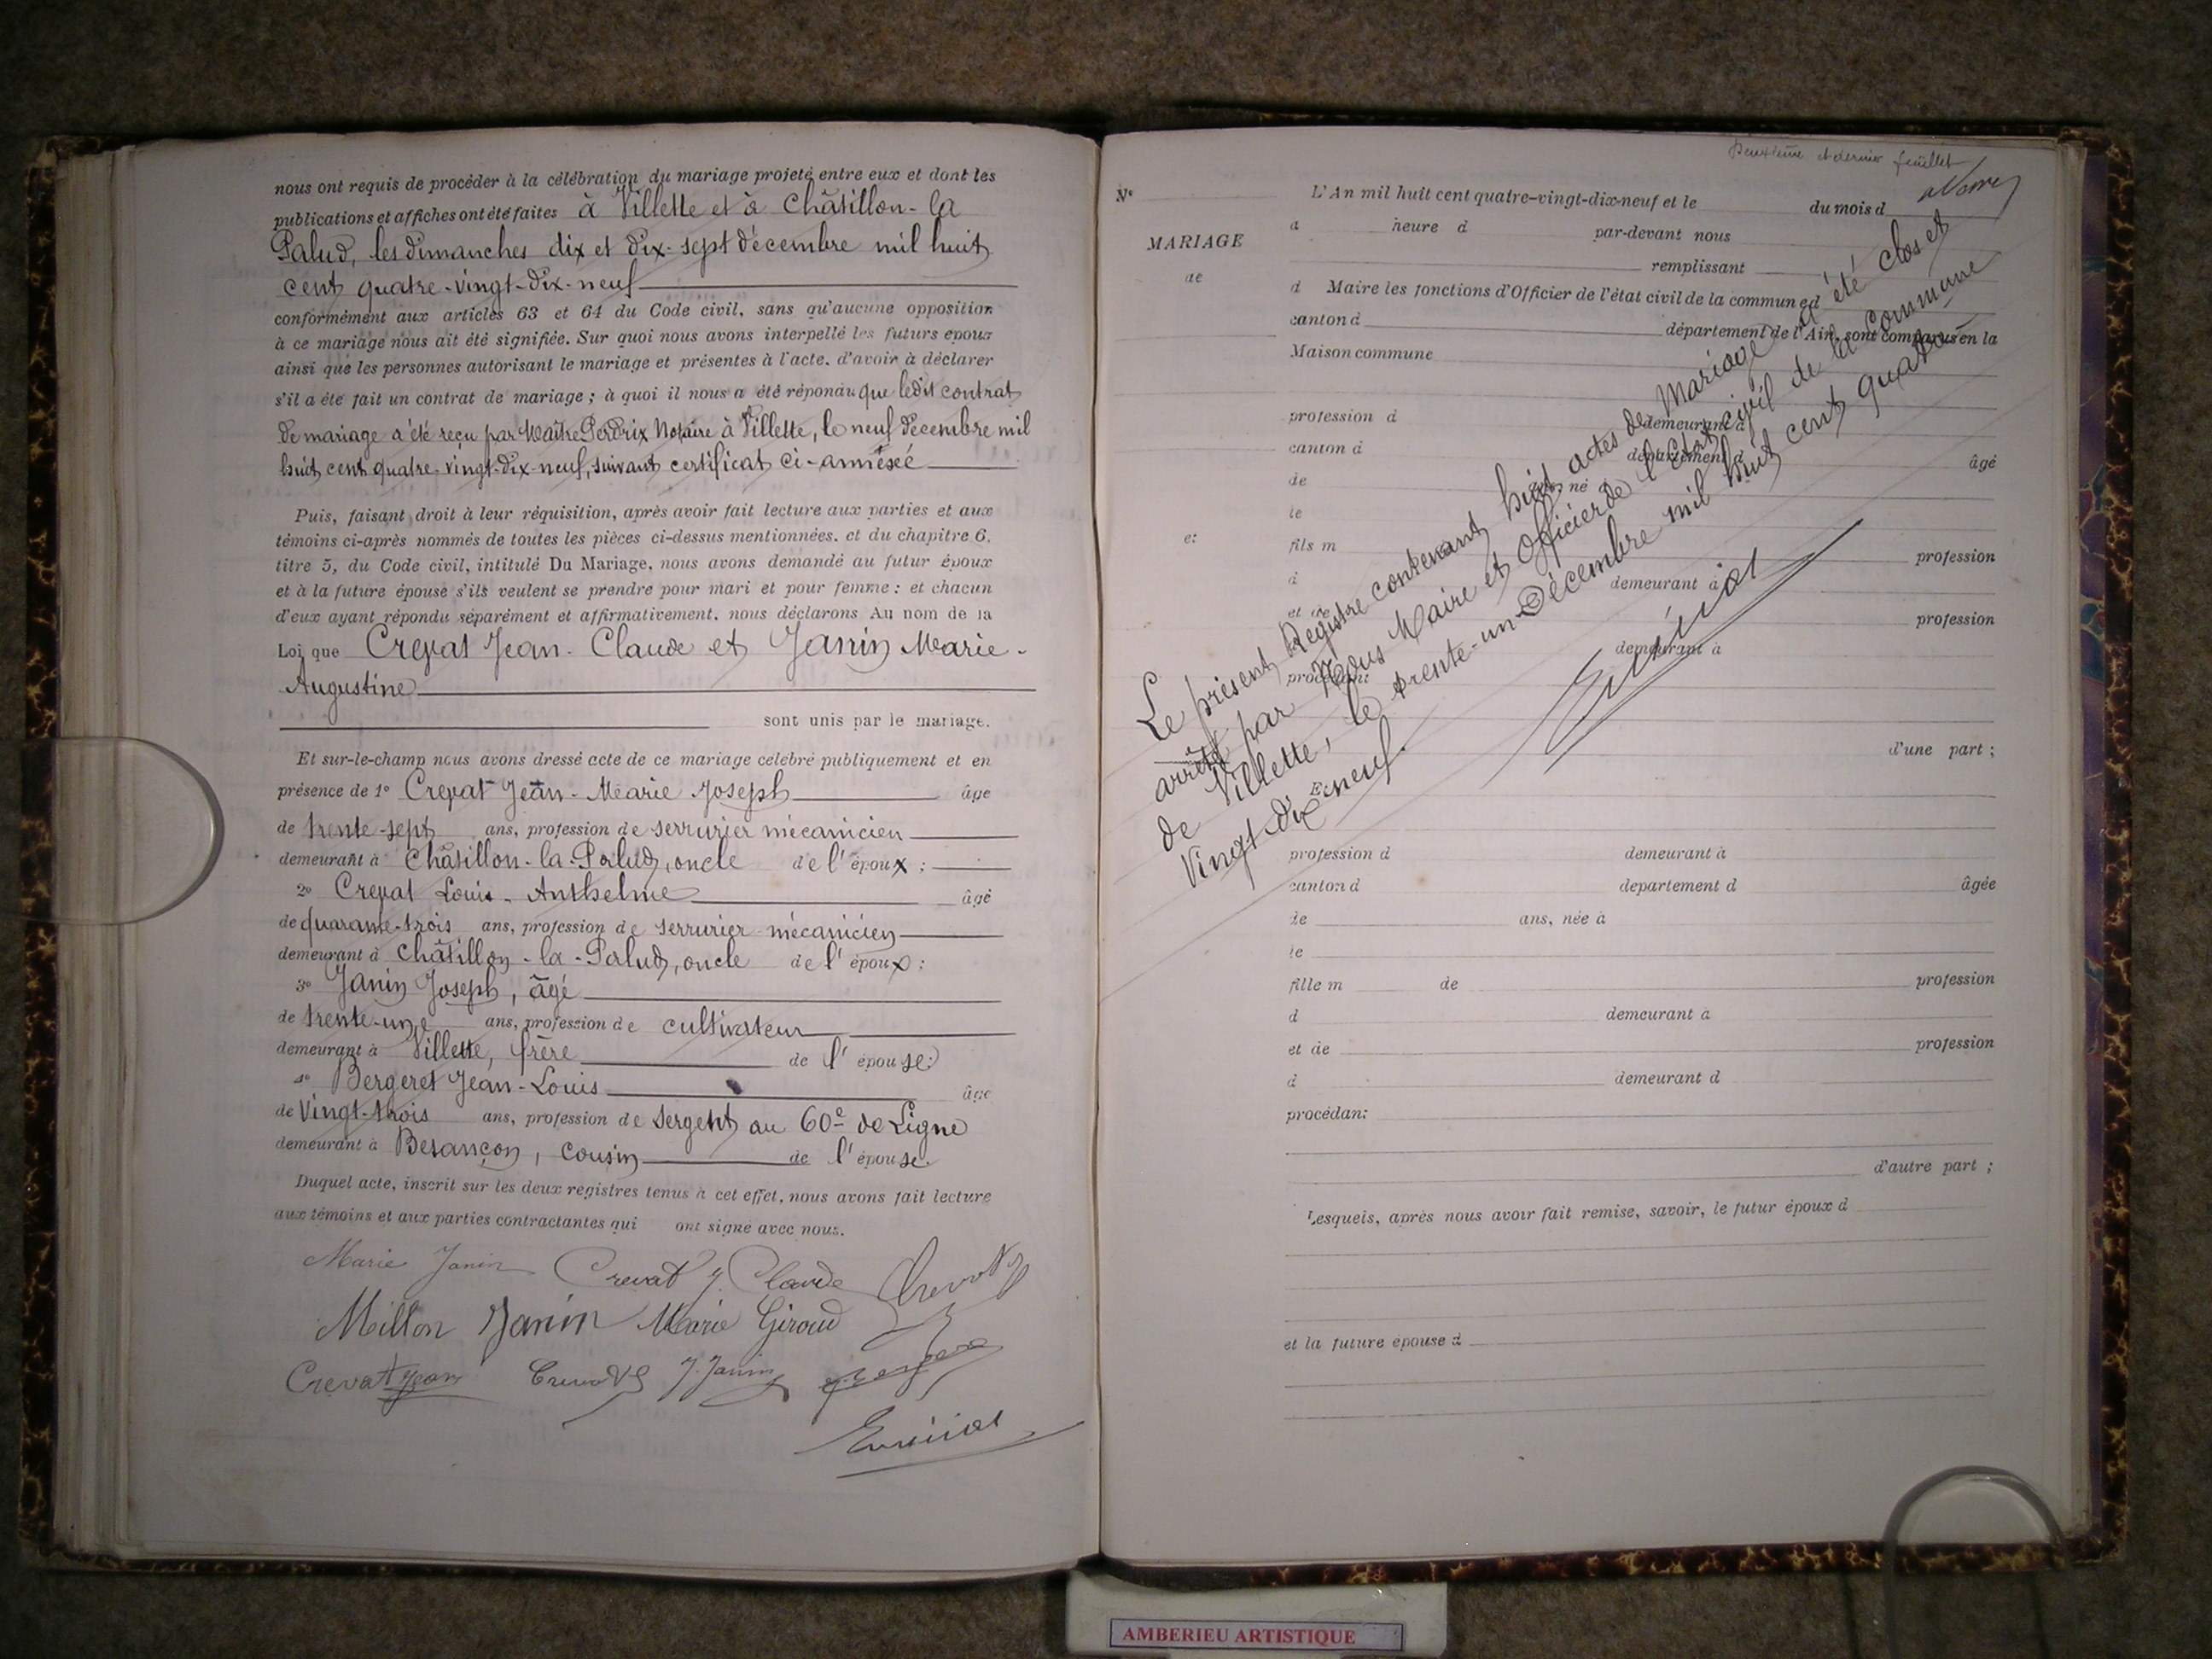 nous ont requis de procéder à la célébration du mariage projeté entre eux et dont les
publications et affiches ont été faites à Villette et à Châtillon-la
Palud, les dimanches dix et dix-sept décembre mil huit
cent quatre-vingt-dix-neuf
conformément aux articles 63 et 64 du Code civil, sans qu'aucune opposition
à ce mariage nous ait été signifiée. Sur quoi nous avons interpellé les futurs epoux
ainsi que les personnes autorisant le mariage et présentes à l'acte, d'avoir à déclarer
s'il a été fait un contrat de mariage ; à quoi il nous a été répondu que ledit contrat
de mariage a été reçu par Maître Perdrix Notaire à Villette, le neuf décembre mil
huit cent quatre-vingt-dix-neuf, suivant certificat ci-annexé
Puis, faisant droit à leur réquisition, après avoir fait lecture aux parties et aux
témoins ci-après nommés de toutes les pièces ci-dessus mentionnées, et du chapitre 6,
titre 5, du Code civil, intitulé Du Mariage, nous avons demandé au futur époux
et à la future épouse s'ils veulent se prendre pour mari et pour femme : et chacun
d'eux ayant répondu séparément et affirmativement, nous déclarons Au nom de la
Loi que Crevat Jean-Claude et Janin Marie-
Augustine
sont unis par le mariage.
Et sur-le-champ nous avons dressé acte de ce mariage célébré publiquement et en
présence de 1° Crevat Jean-Marie Joseph âgé
de trente-sept ans, profession de serrurier mécanicien
demeurant à Châtillon-la-Palud, oncle de l'époux ;
2° Crevat Louis-Anthelme âgé
de quarante-trois ans, profession de serrurier-mécanicien
demeurant à Châtillon-la-Palud, oncle de l'époux ;
3° Janin Joseph, âgé
de trente-une ans, profession de cultivateur
demeurant à Villette, frère de l'épouse ;
4° Bergeret Jean-Louis âgé
de vingt-trois ans, profession de sergent au 60e de Ligne
demeurant à Besançon, cousin de l'épouse.
Duquel acte, inscrit sur les deux registres tenus à cet effet, nous avons fait lecture
aux témoins et aux parties contractantes qui ont signé avec nous.
Marie Janin Crevat J. Claude
Millon Janin Marie Giroud
Crevat Jean J. Janin
Deuxième et dernier feuillet
N°
L'An mil huit cent quatre-vingt-dix-neuf et le du mois d
à heure d par-devant nous
MARIAGE
remplissant
de
d Maire les fonctions d'Officier de l'état civil de la commune d
canton d département de l'Ain, sont comparus en la
Maison commune
profession d demeurant à
canton d département d âgé
de ans, né à
le
et
fils m profession
d demeurant à
et de profession
demeurant à
procédant
d'une part ;
Et
profession d demeurant à
canton d departement d âgée
de ans, née à
le
fille m de profession
d demeurant à
et de profession
d demeurant d
procédant
d'autre part ;
Lesquels, après nous avoir fait remise, savoir, le futur époux d
et la future épouse d
Le présent Registre contenant huit actes de Mariage a été clos et
arrêté par Nous Maire et Officier de l'Etat civil de la Commune
de Villette, le trente-un Décembre mil huit cent quatre
Vingt dix neuf.
AMBERIEU ARTISTIQUE